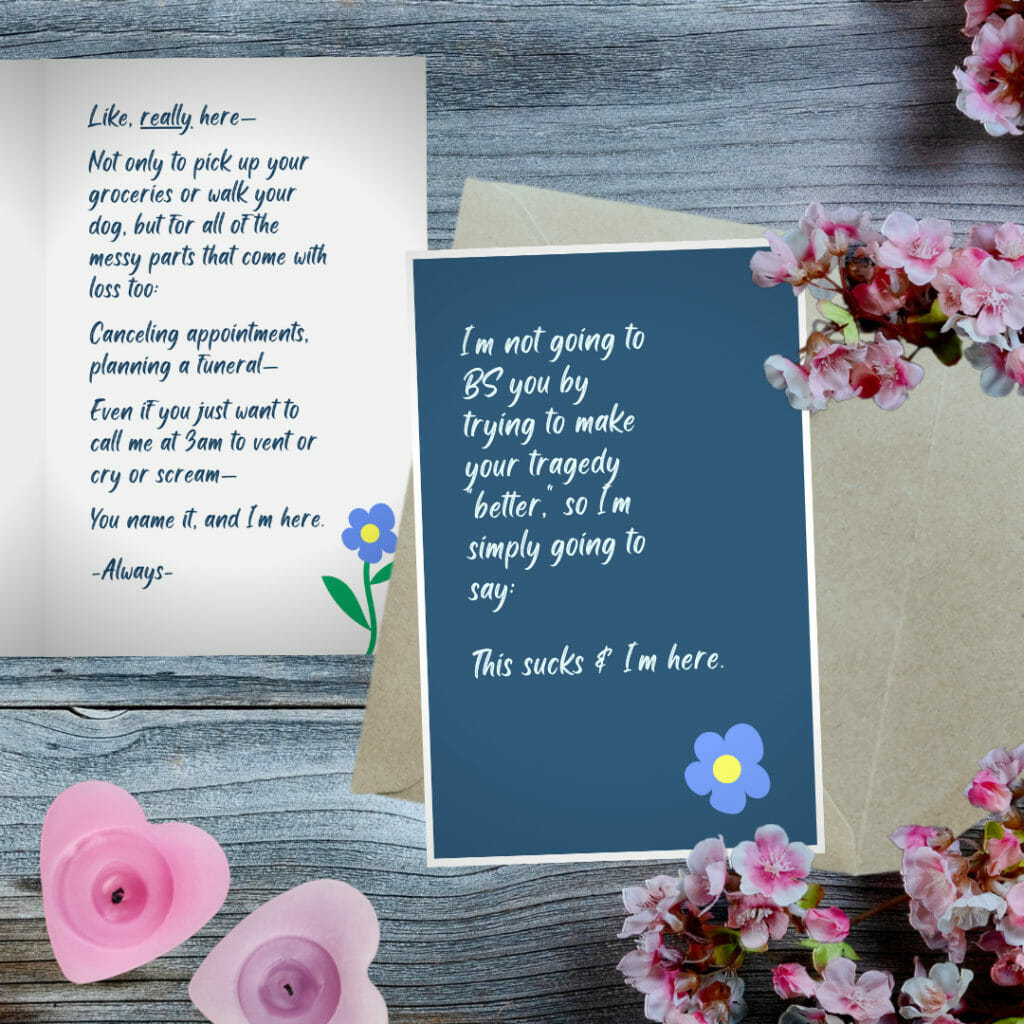 Like, really here—
Not only to pick up your
groceries or walk your
dog, but for all of the
messy parts that come with
loss too:
Canceling appointments,
planning a funeral—
Even if you just want to
call me at 3am to vent or
cry or scream—
You name it, and I'm here.
-Always-
I'm not going to
BS you by
trying to make
your tragedy
"better," so I'm
simply going to
say:
This sucks & I'm here.